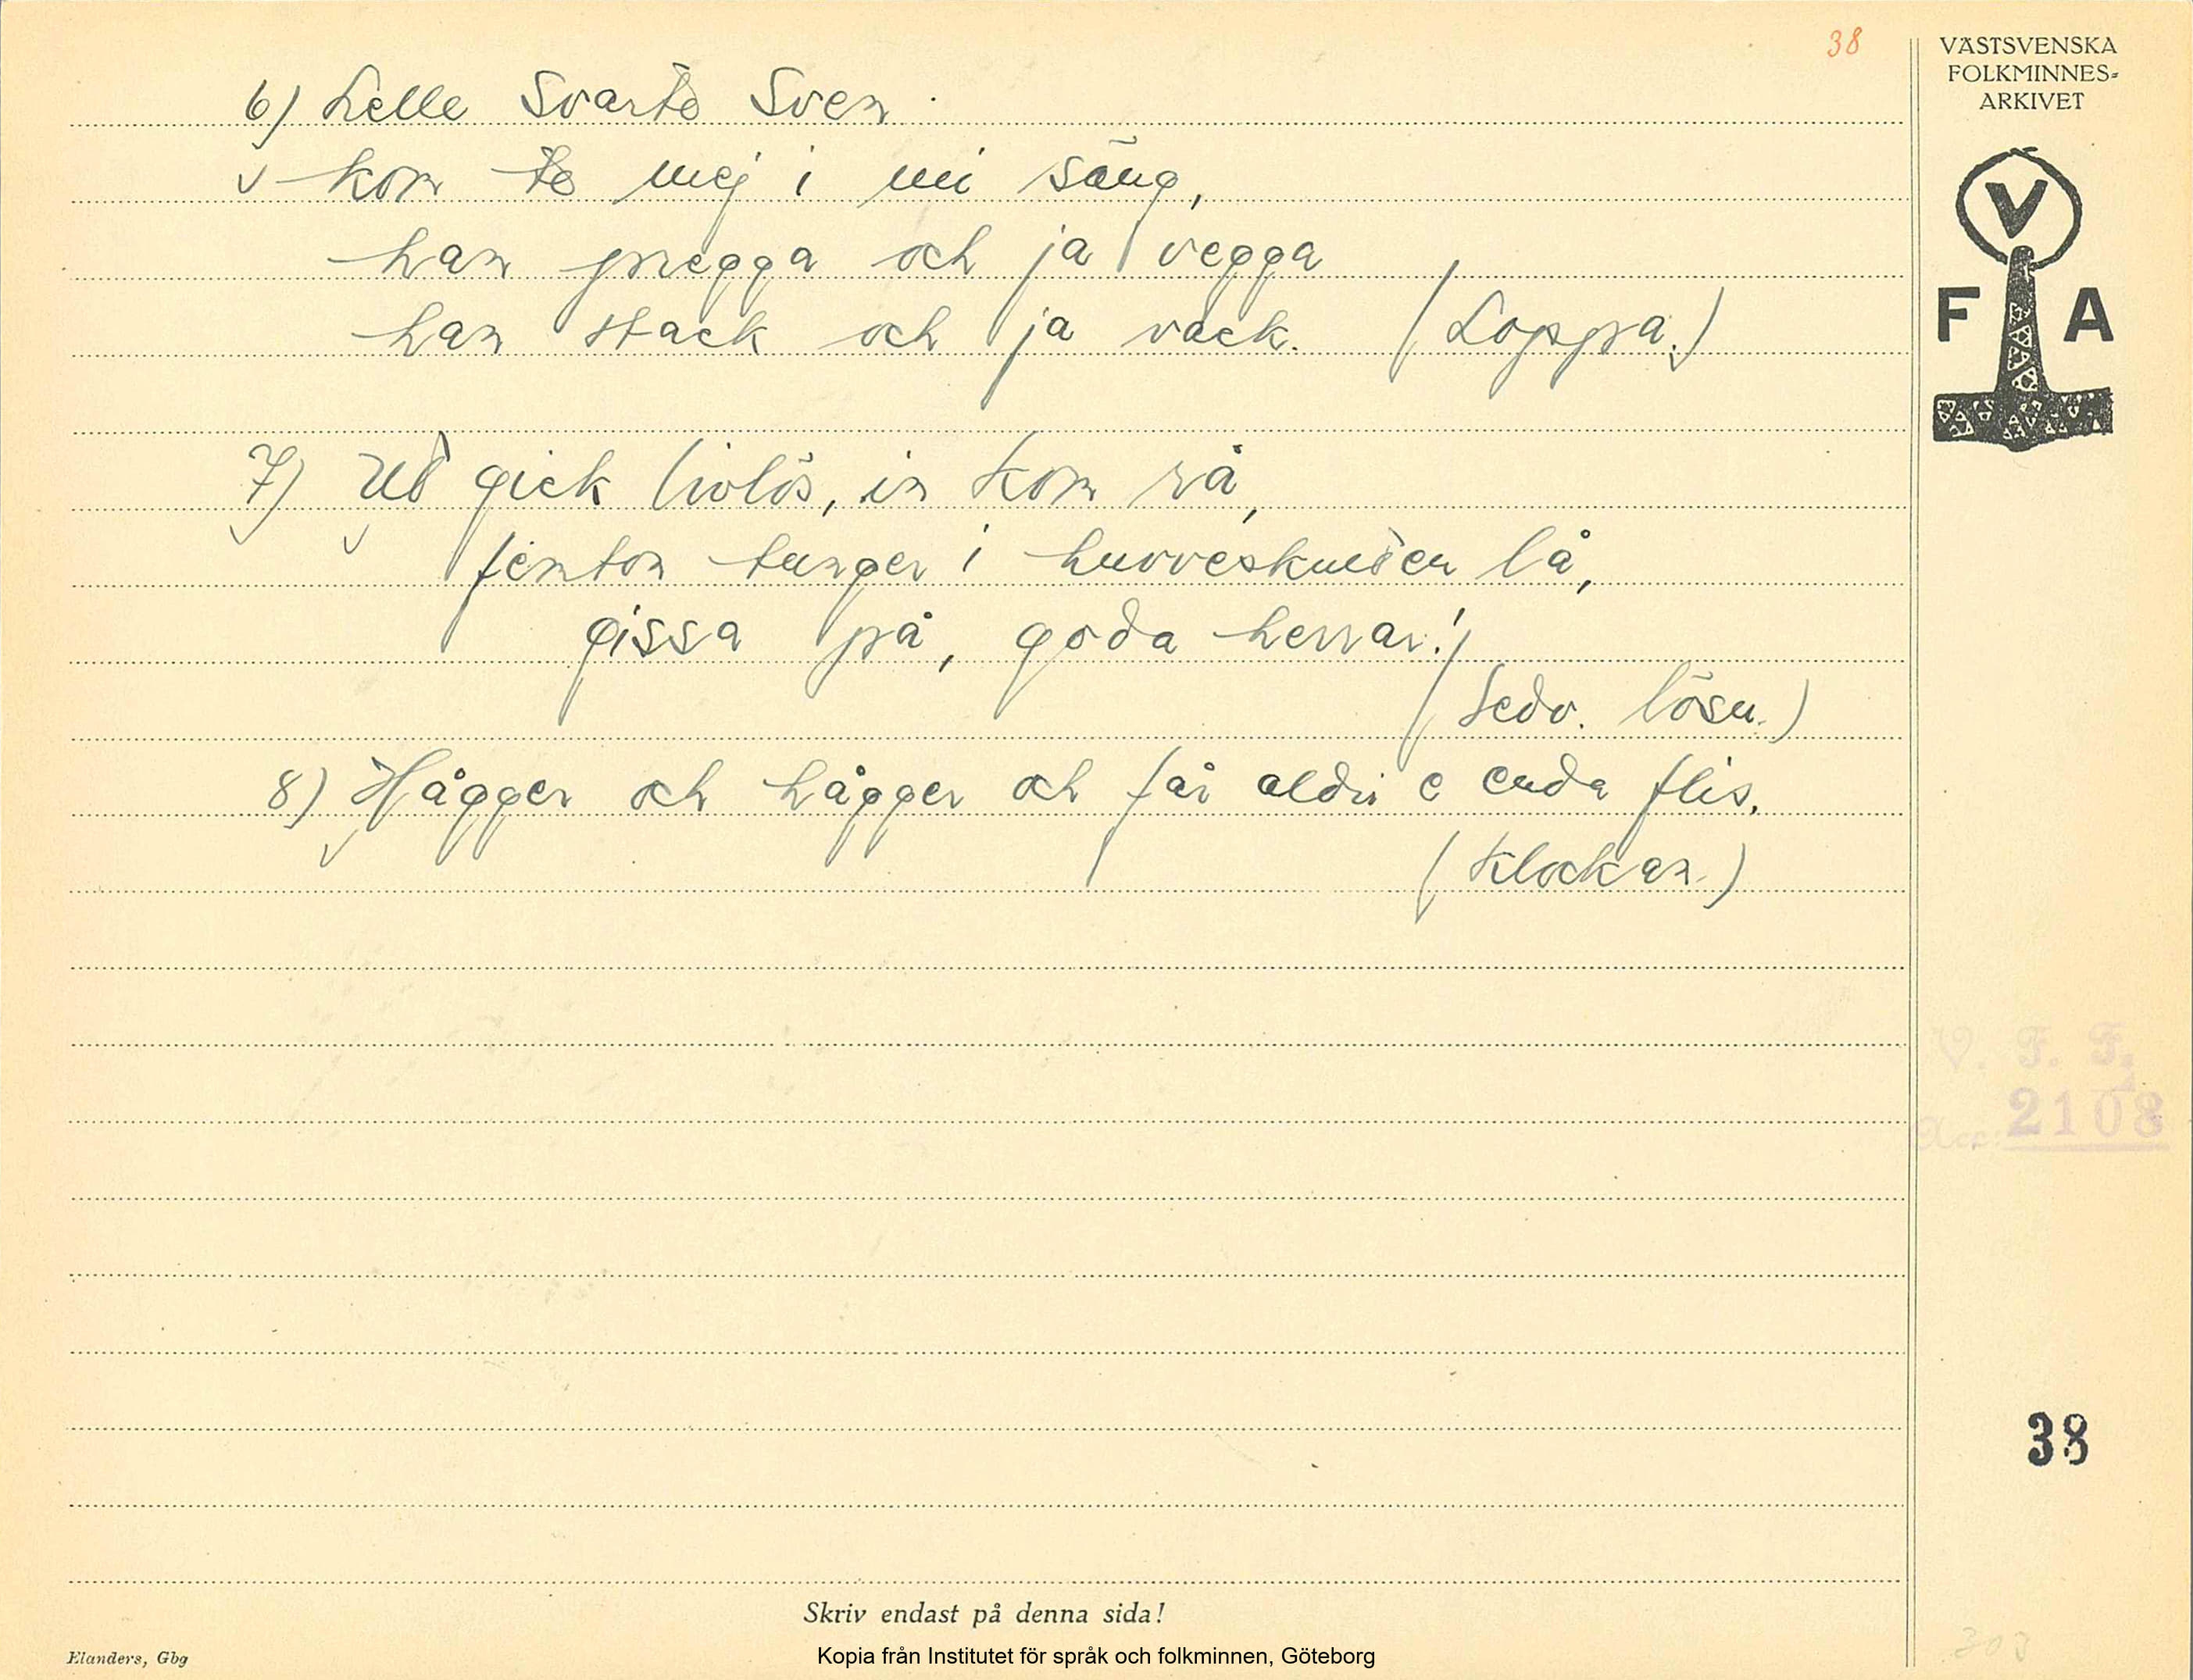 38
VÄSTSVENSKA
FOLKMINNES-
ARKIVET
V
F A
6) Lelle Svarte Sven
kom te mej i mi säng,
han pregga och ja vegga
han stack och ja vack. (Loppa.)
7) Ud gick livlös, in kom rå,
femton tunger i huvveskueden lå,
gissa på, goda herrar!
(Sedv. lösn.)
8) Hågger och hågger och får aldri e enda flis.
(Klockan.)
V. F. F.
Acc: 2108
38
Skriv endast på denna sida!
Elanders, Gbg
Kopia från Institutet för språk och folkminnen, Göteborg